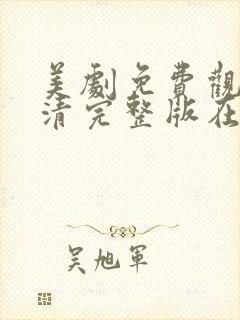 美劇免費觀
清完整版在
吳旭軍